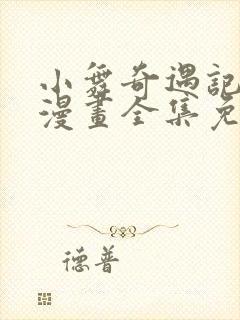 小舞奇遇記
漫畫全集免
德普